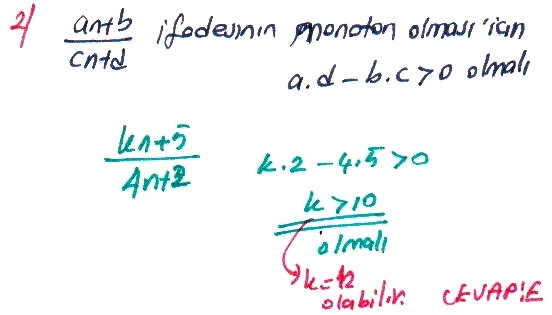 2/ an+b / cn+d ifadesinin monoton olması için
a.d - b.c > 0 olmalı
kn+5 / 4n+2 k.2 - 4.5 > 0
k > 10
olmalı
k=12
olabilir. CEVAP:E